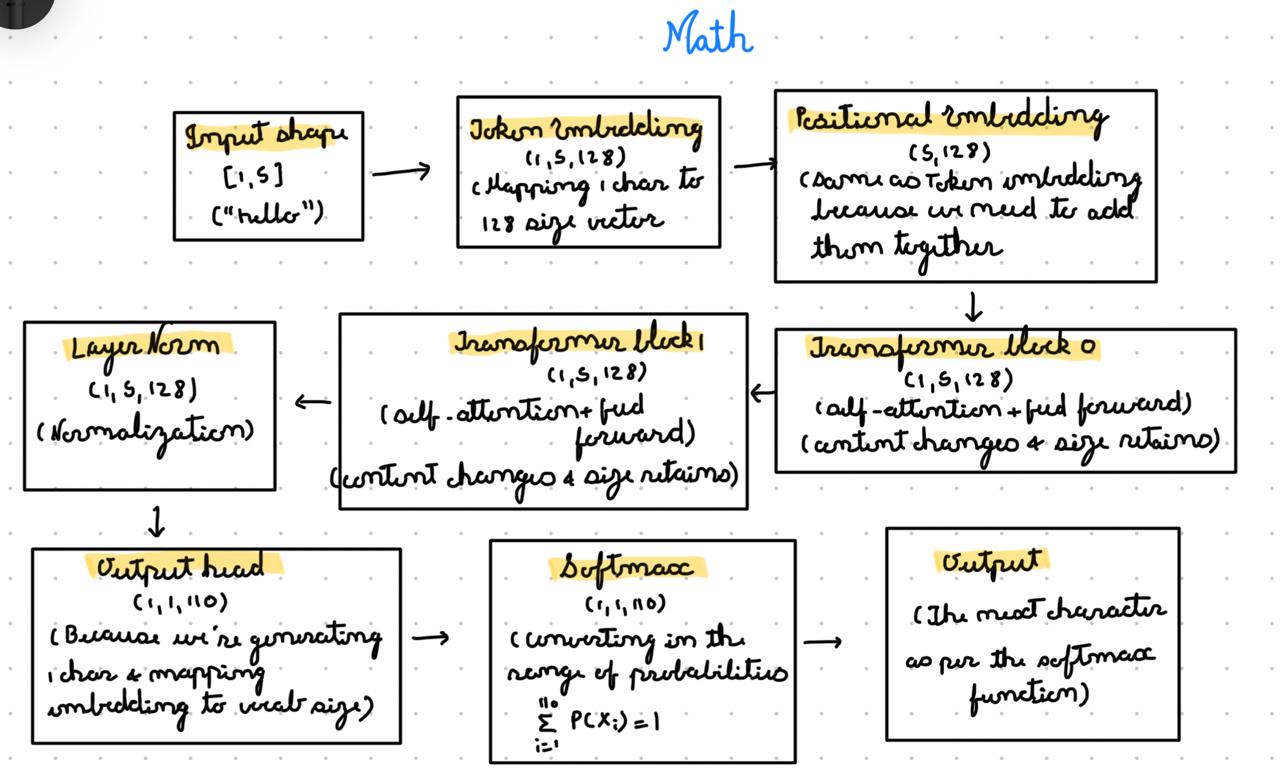 Math
Input shape
[1,5]
("hello")
Token Embedding
(1,5,128)
(Mapping 1 char to
128 size vector
Positional Embedding
(5,128)
(same as Token embedding
because we need to add
them together
Transformer block 0
(1,5,128)
(self-attention + feed forward)
(content changes & size retains)
Transformer block 1
(1,5,128)
(self-attention + feed
forward)
(content changes & size retains)
Layer Norm
(1,5,128)
(Normalization)
Output head
(1,1,110)
(Because we're generating
1 char & mapping
embedding to vocab size)
Softmax
(1,1,110)
(converting in the
range of probabilities
110
Σ P(Xi) = 1
i=1
Output
(The next character
as per the softmax
function)